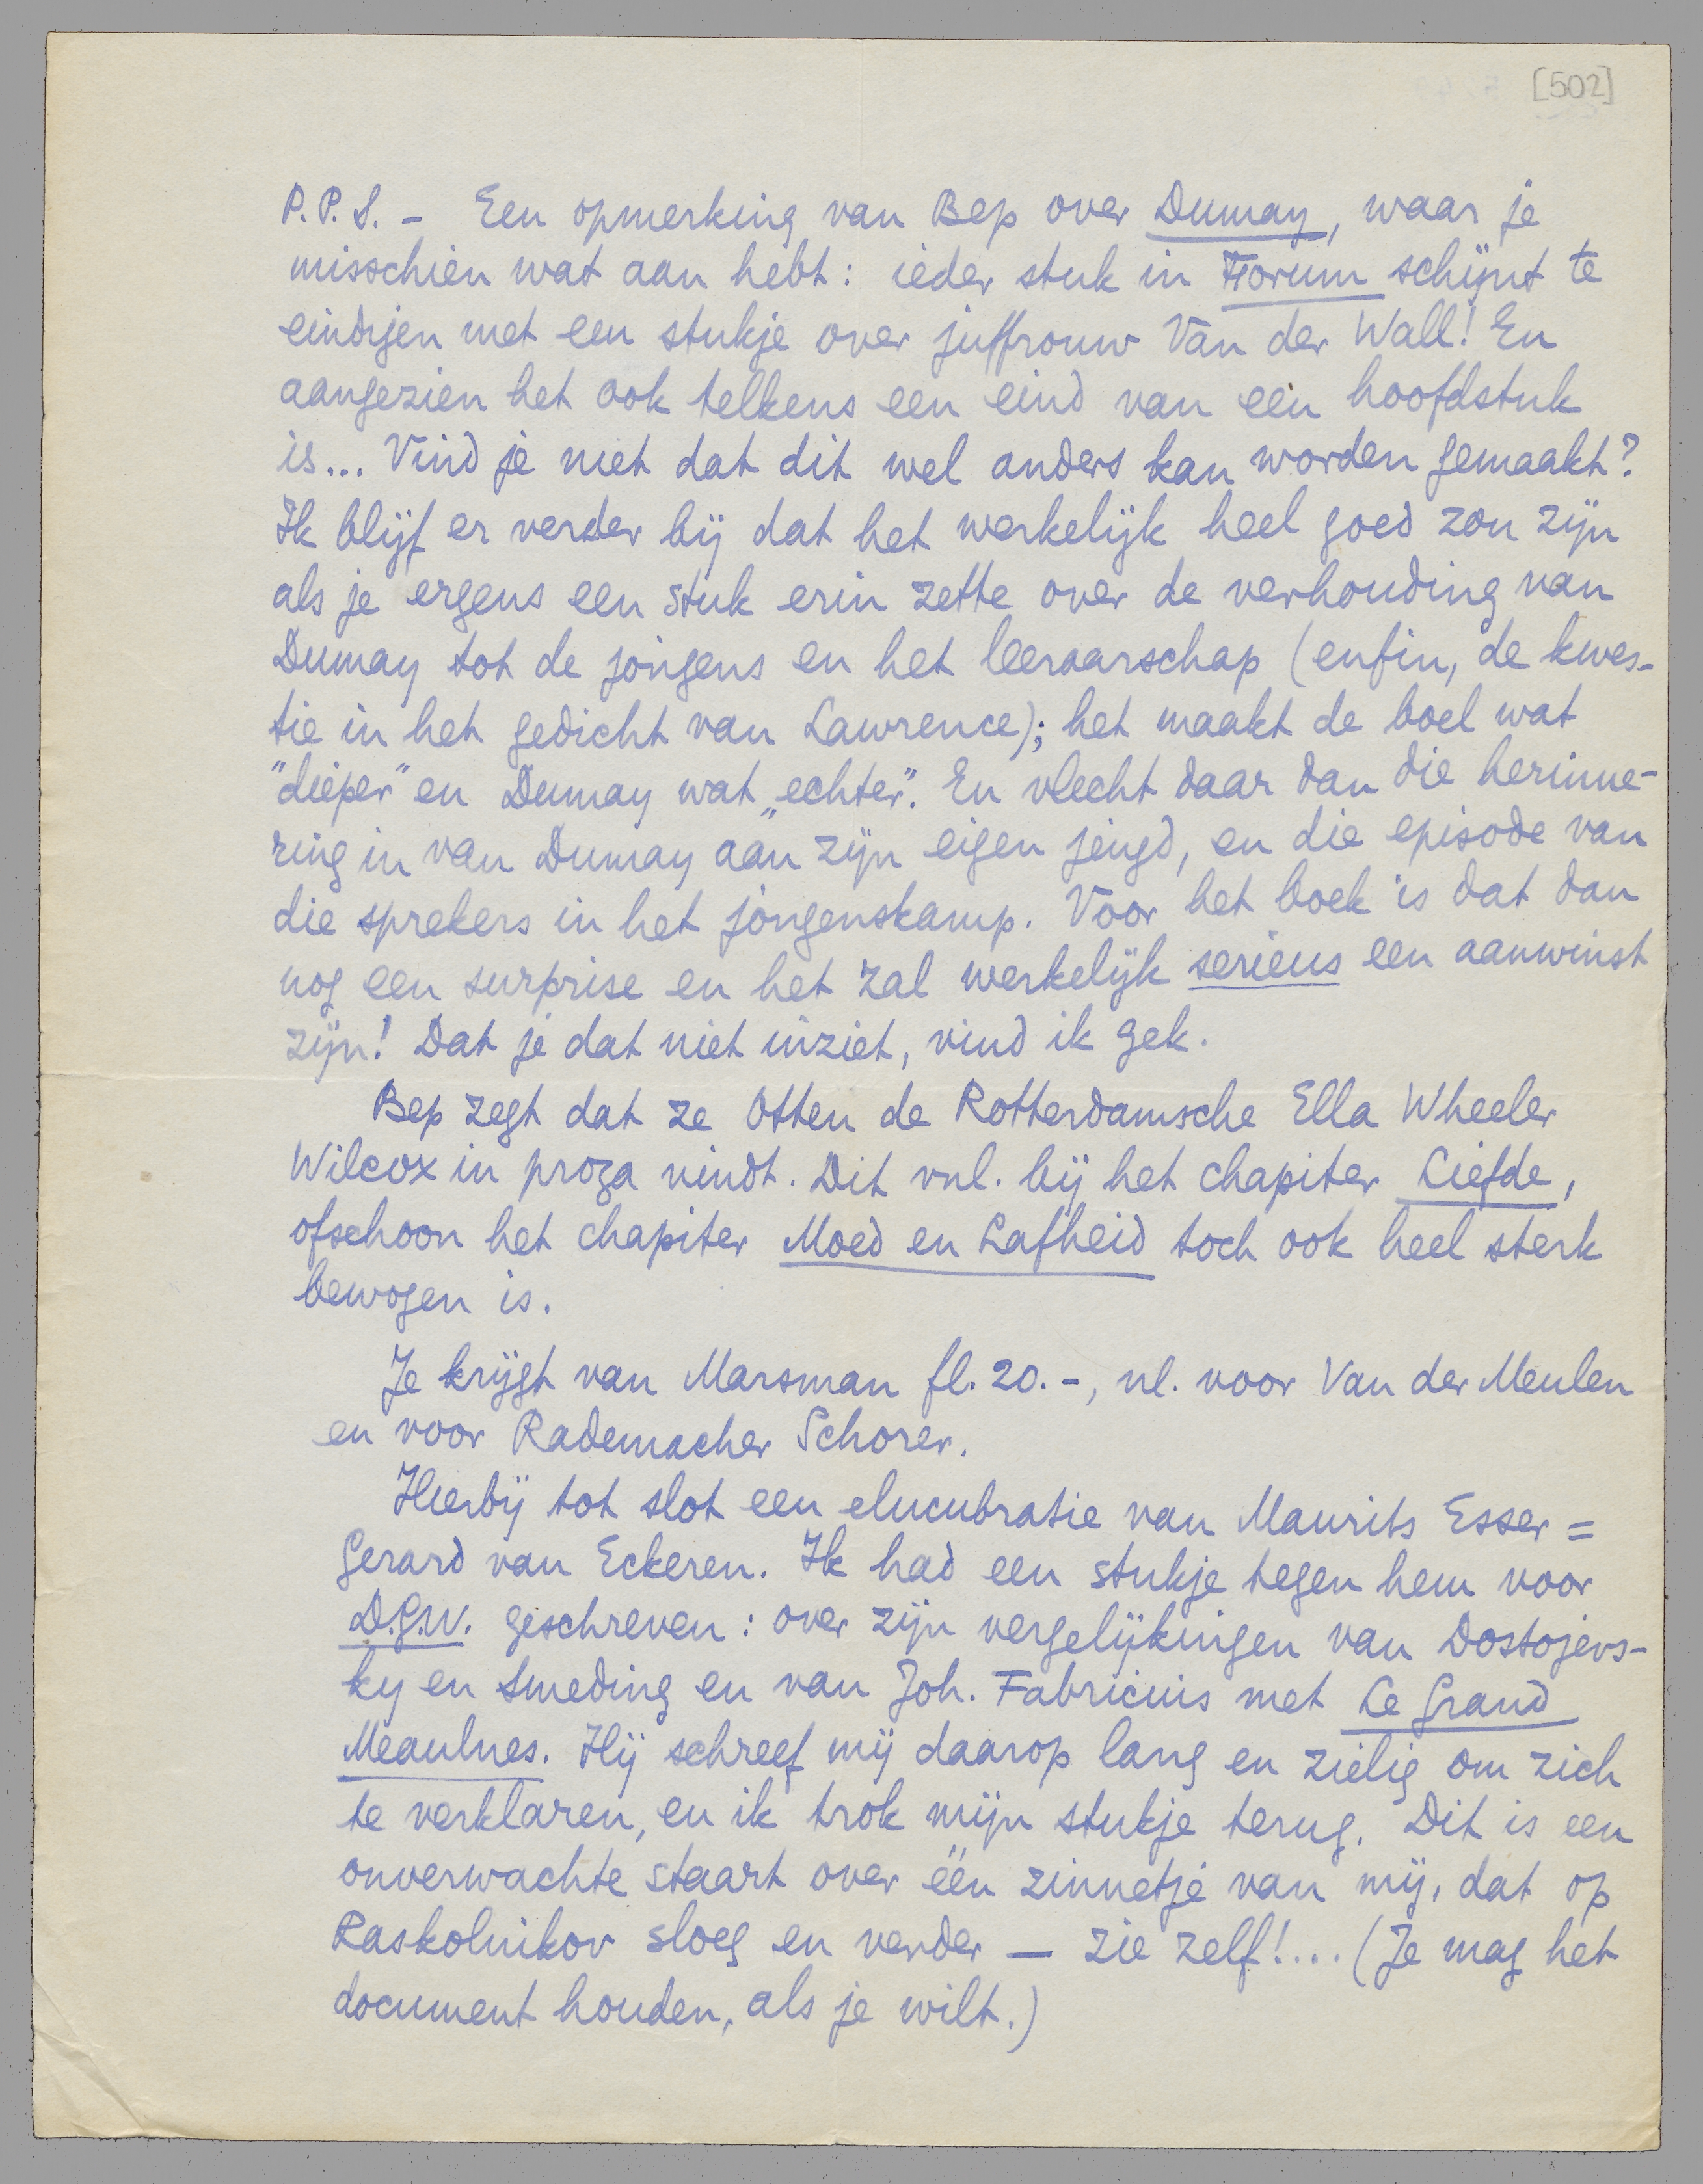 [502]
P.P.S. - Een opmerking van Bep over Dumay, waar je
misschien wat aan hebt: ieder stuk in Forum schijnt te
eindigen met een stukje over juffrouw Van der Wall! En
aangezien het ook telkens een eind van een hoofdstuk
is... Vind je niet dat dit wel anders kan worden gemaakt?
Ik blijf er verder bij dat het werkelijk heel goed zou zijn
als je ergens een stuk erin zette over de verhouding van
Dumay tot de jongens en het leeraarschap (enfin, de kwes-
tie in het gedicht van Lawrence); het maakt de boel wat
"dieper" en Dumay wat „echter". En vlecht daar dan die herinne-
ring in van Dumay aan zijn eigen jeugd, en die episode van
die sprekers in het jongenskamp. Voor het boek is dat dan
nog een surprise en het zal werkelijk serieus een aanwinst
zijn! Dat je dat niet inziet, vind ik gek.
Bep zegt dat ze Otten de Rotterdamsche Ella Wheeler
Wilcox in proza vindt. Dit vnl. bij het chapiter Liefde,
ofschoon het chapiter Moed en Lafheid toch ook heel sterk
bewogen is.
Je krijgt van Marsman fl. 20.-, nl. voor Van der Meulen
en voor Rademacher Schorer.
Hierbij tot slot een elucubratie van Maurits Esser =
Gerard van Eckeren. Ik had een stukje tegen hem voor
D.G.W. geschreven: over zijn vergelijkingen van Dostojevs-
ky en Smeding en van Joh. Fabricius met Le Grand
Meaulnes. Hij schreef mij daarop lang en zielig om zich
te verklaren, en ik trok mijn stukje terug. Dit is een
onverwachte staart over één zinnetje van mij, dat op
Raskolnikov sloeg en verder — zie zelf!... (Je mag het
document houden, als je wilt.)